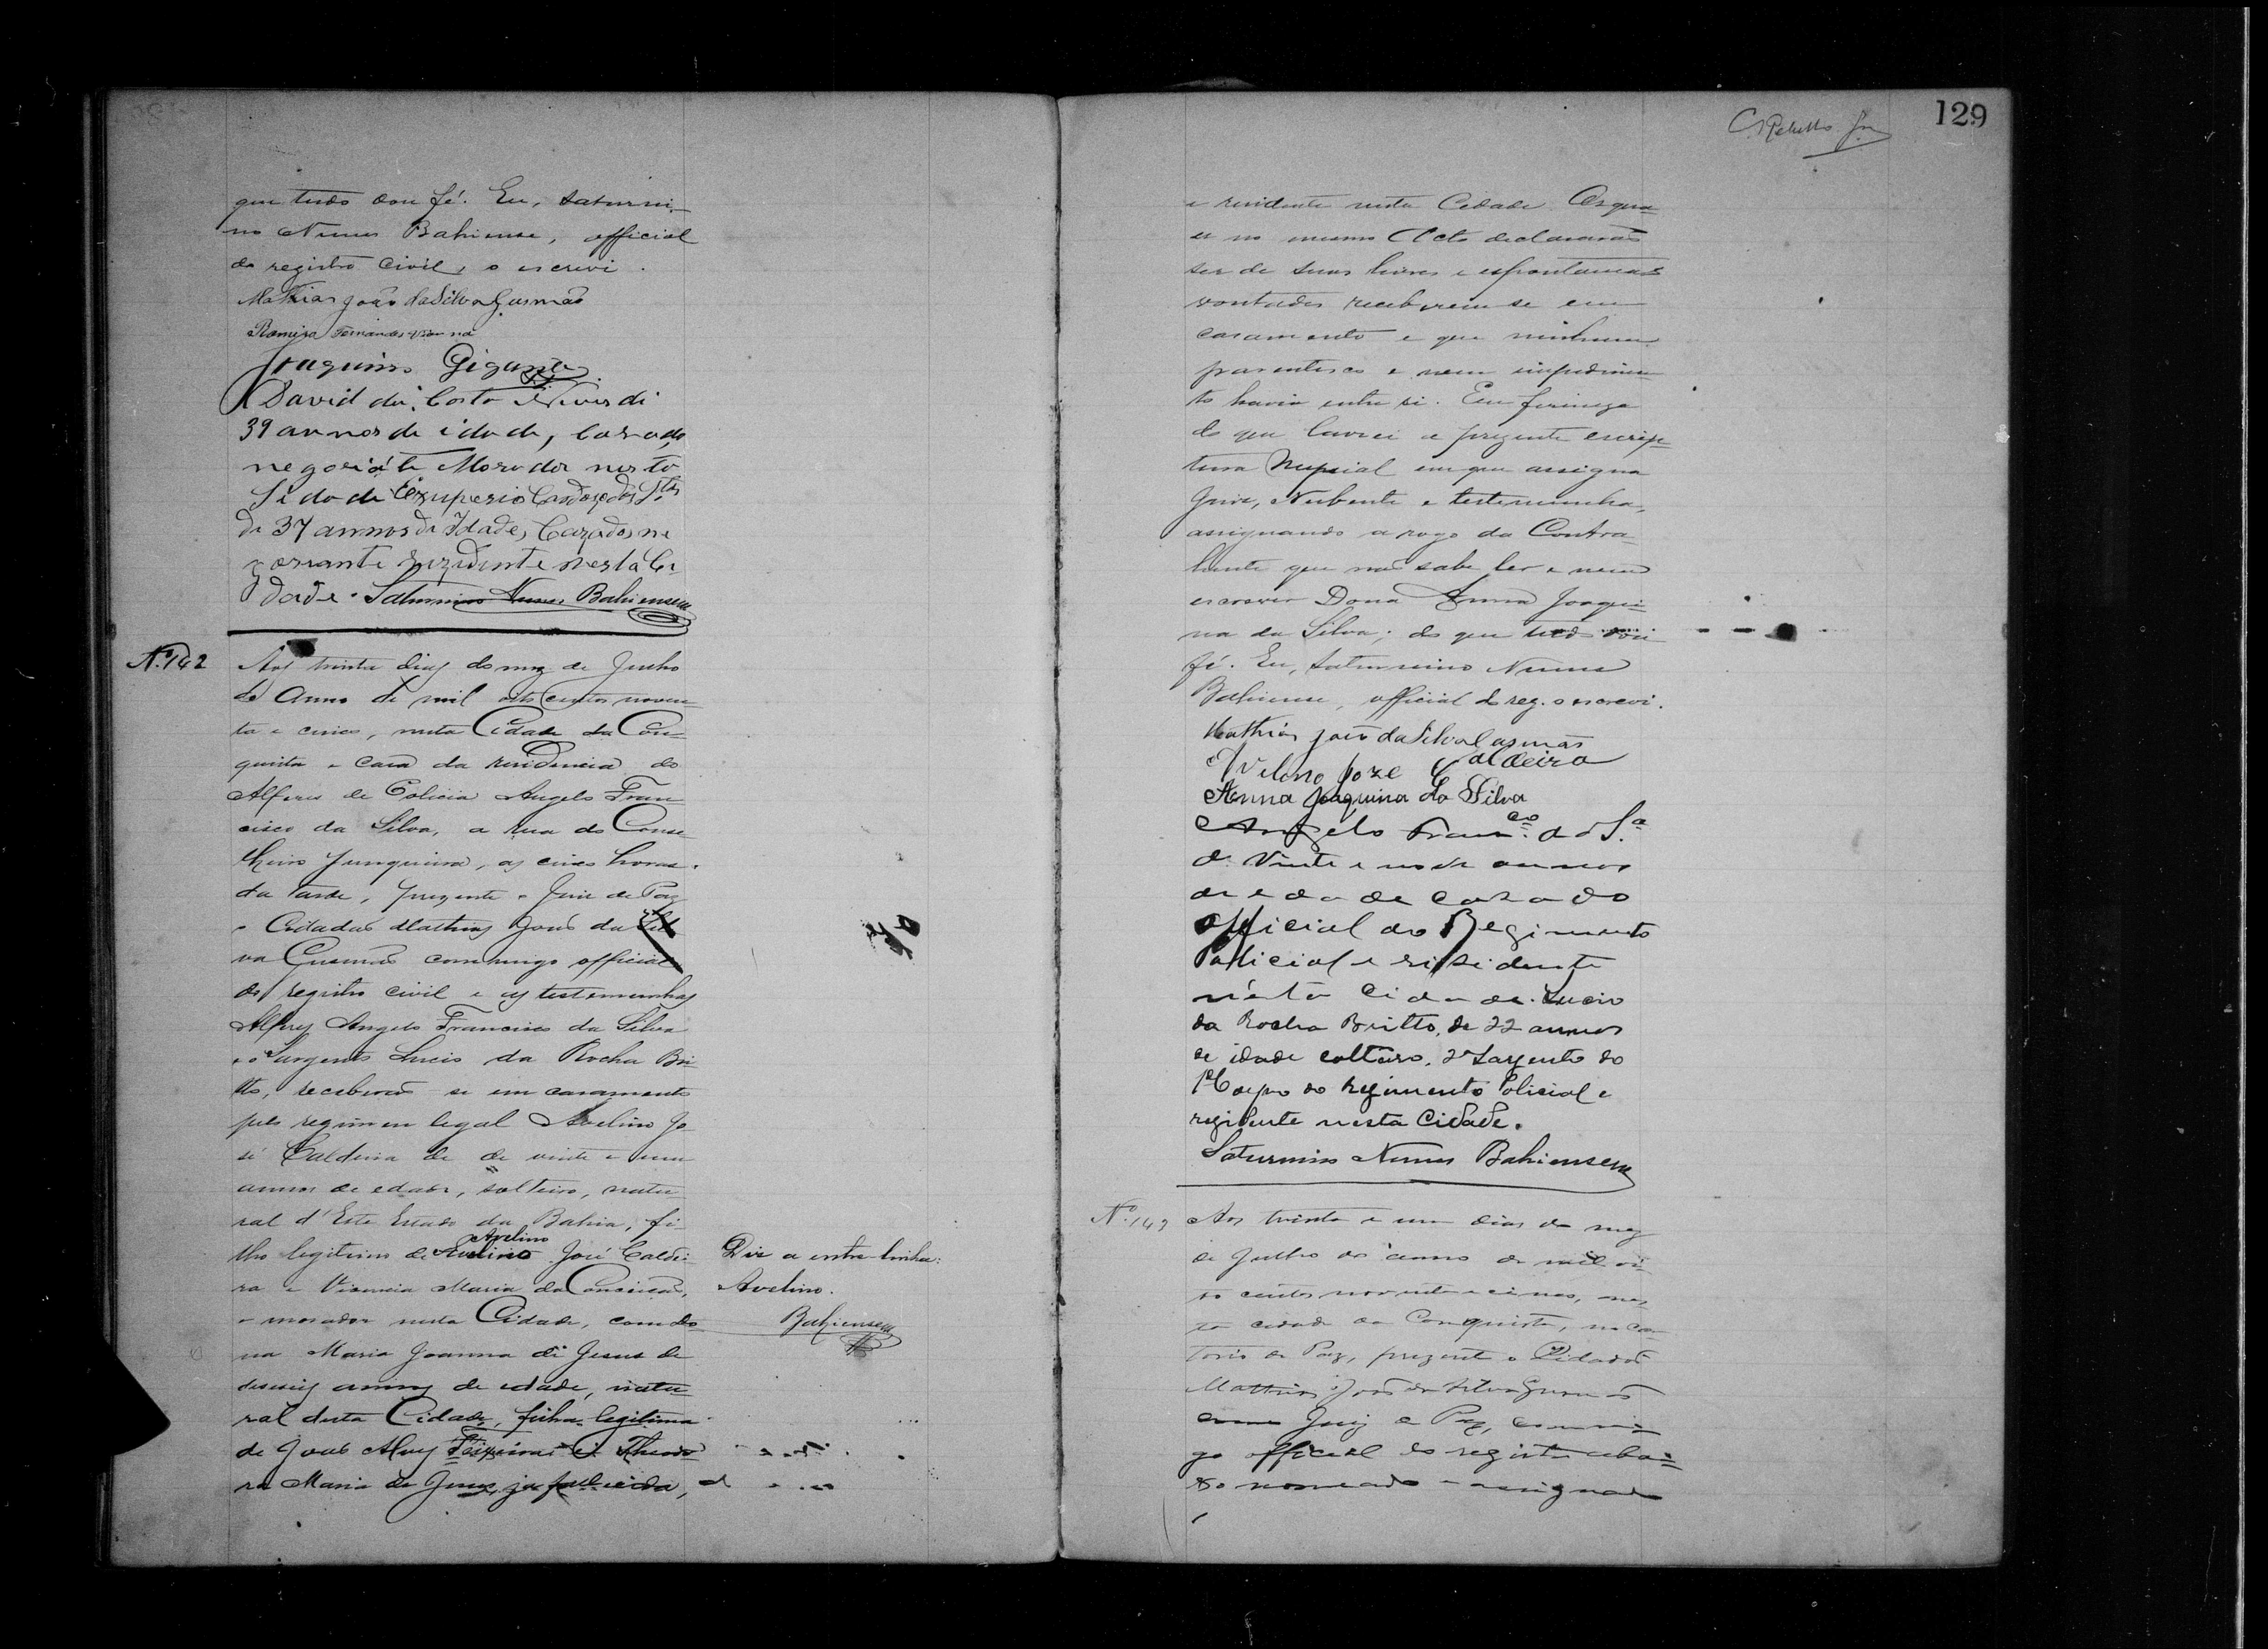 que tudo dou fé. Eu, Saturni-
no Nunes Bahiense, official
do registro civil, o escrevi.
Mathias João da Silva Gusmão
Ramiro Fernandes Vianna
Joaquim Gigante
David da Costa Neves di
39 annos de idade, Casado,
negociáte Morador nesta
Sidade Exuperio Cardozo dos Stos
de 37 annos de Idade, Cazado, ne
gossiante rezidente nesta Ci
dade. Saturnino Nunes Bahiense
Nº 142
Aos trinta dias do mez de Junho
do Anno de mil oito centos noven-
ta e cinco, nesta Cidade da Con-
quista e casa da residencia do
Alferes de Policia Angelo Fran
cisco da Silva, a rua do Conse
lheiro Junqueira, as cinco horas
da tarde, prezente o Juiz de Paz
o Cidadão Mathias João da Sil
va Gusmão commigo official
do registro civil e as testemunhas
Alferes Angelo Francisco da Silva
e o Sargento Lucio da Rocha Bri
tto, receberão-se em casamento
pelo regimen legal Avelino Jo
sé Caldeira de de vinte e um
annos de edade, solteiro, natu
ral d'Este Estado da Bahia, fi
Avelino
lho legitimo de José Caldei-
ra e Vicencia Maria da Conceicão,
e morador nesta Cidade, com do
na Maria Joanna de Jesus de
deseseis annos de edade, natu
ral desta Cidade, filha legitima
de João Alves Teixeira e Theodo
ra Maria de Jesus, ja fallecida,
Diz a entre-linha:
Avelino.
Bahiense
129
e residente nesta Cidade. Os qua
es no mesmo Acto declararão
ser de suas livres e espontaneas
vontades receberem se em
casamento e que nenhum
parentesco e nem impedimen
to havia entre si. Em firmeza
do que lavrei a prezente escrip-
tura Nupcial em que assigna
Juiz, Nubente e testemunha,
assignando a rogo da Contra-
hente que não sabe ler e nem
escrever Dona Anna Joaqui-
na da Silva; do que tudo dou
fé. Eu, Saturnino Nunes
Bahiense, official do reg. o escrevi.
Mathias João da Silva Gusmão
Avelino Joze Caldeira
Anna Joaquina da Silva
Angelo Franco da Sa
de Vinte e nove annos
de edade cazado
official do Regimento
Policial e risidente
nésta Cidade. Lucio
da Rocha Britto, de 22 annos
de idade solteiro, 2º Sargento do
1º Corpo do Regimento Policial e
rezidente nesta Cidade.
Saturnino Nunes Bahiense
Nº 143
Aos trinta e um dias do mez
de Julho do anno de mil oi-
to centos noventa e cinco, nes
ta cidade da Conquista, no car
torio de Paz, prezente o Cidadão
Mathias João da Silva Gusmão
como Juiz de Paz, commi-
go official do registro abai-
xo nomeado e assignado